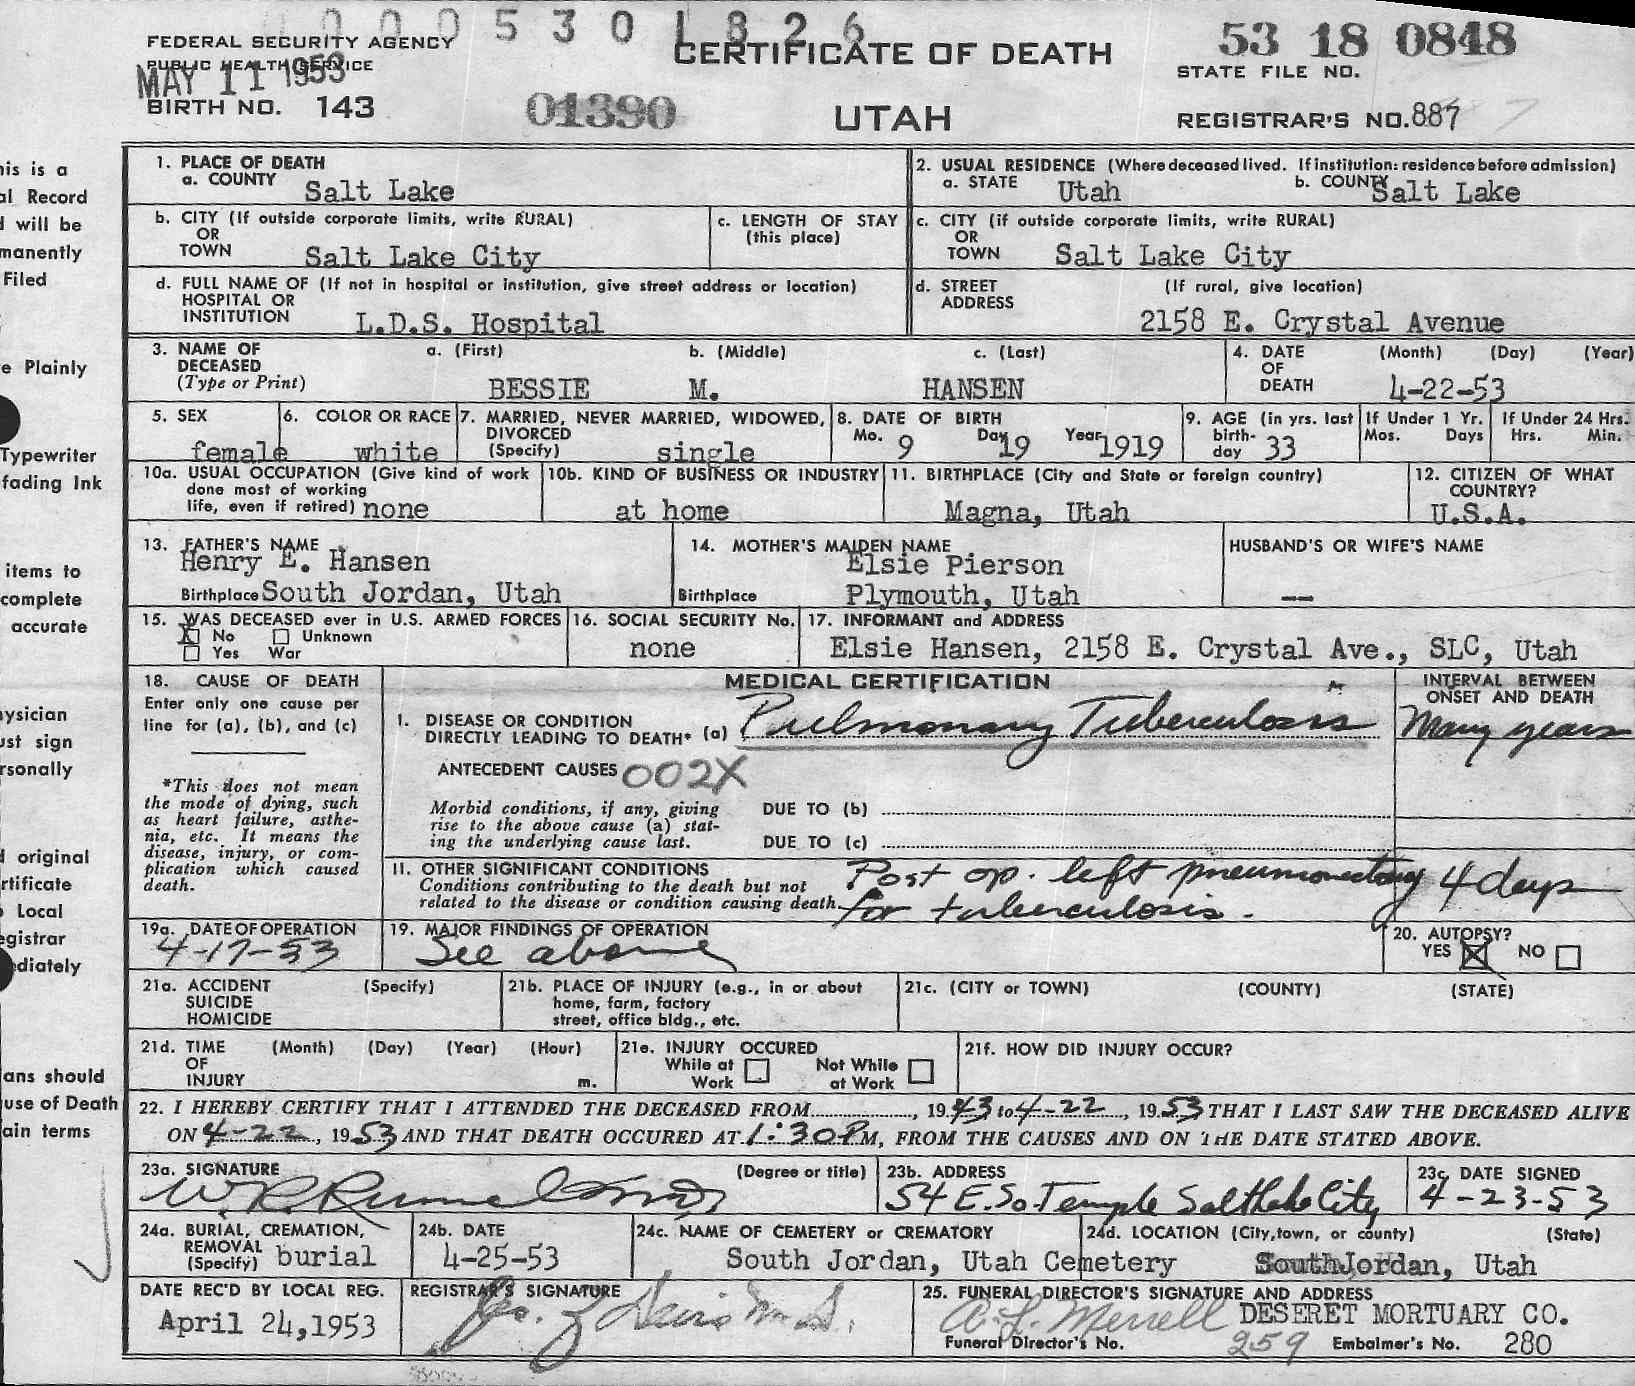 0 0 0 5 3 0 1 8 2 6
FEDERAL SECURITY AGENCY
PUBLIC HEALTH SERVICE
MAY 11 1953
BIRTH NO. 143
01390
CERTIFICATE OF DEATH
UTAH
53 18 0848
STATE FILE NO.
REGISTRAR'S NO. 887
his is a
al Record
d will be
manently
Filed
e Plainly
Typewriter
fading Ink
items to
complete
accurate
ysician
ust sign
rsonally
d original
rtificate
Local
egistrar
ediately
ans should
use of Death
ain terms
1. PLACE OF DEATH
a. COUNTY Salt Lake
2. USUAL RESIDENCE (Where deceased lived. If institution: residence before admission)
a. STATE Utah b. COUNTY Salt Lake
b. CITY (If outside corporate limits, write RURAL)
OR
TOWN Salt Lake City
c. LENGTH OF STAY
(this place)
c. CITY (if outside corporate limits, write RURAL)
OR
TOWN Salt Lake City
d. FULL NAME OF (If not in hospital or institution, give street address or location)
HOSPITAL OR
INSTITUTION L.D.S. Hospital
d. STREET (If rural, give location)
ADDRESS
2158 E. Crystal Avenue
3. NAME OF a. (First) b. (Middle) c. (Last)
DECEASED
(Type or Print) BESSIE M. HANSEN
4. DATE (Month) (Day) (Year)
OF
DEATH 4-22-53
5. SEX
female
6. COLOR OR RACE
white
7. MARRIED, NEVER MARRIED, WIDOWED,
DIVORCED
(Specify) single
8. DATE OF BIRTH
Mo. 9 Day 19 Year 1919
9. AGE (in yrs. last
birth-
day 33
If Under 1 Yr.
Mos. Days
If Under 24 Hrs.
Hrs. Min.
10a. USUAL OCCUPATION (Give kind of work
done most of working
life, even if retired) none
10b. KIND OF BUSINESS OR INDUSTRY
at home
11. BIRTHPLACE (City and State or foreign country)
Magna, Utah
12. CITIZEN OF WHAT
COUNTRY?
U.S.A.
13. FATHER'S NAME
Henry E. Hansen
Birthplace South Jordan, Utah
14. MOTHER'S MAIDEN NAME
Elsie Pierson
Birthplace Plymouth, Utah
HUSBAND'S OR WIFE'S NAME
--
15. WAS DECEASED ever in U.S. ARMED FORCES
X No Unknown
Yes War
16. SOCIAL SECURITY No.
none
17. INFORMANT and ADDRESS
Elsie Hansen, 2158 E. Crystal Ave., SLC, Utah
18. CAUSE OF DEATH
Enter only one cause per
line for (a), (b), and (c)
*This does not mean
the mode of dying, such
as heart failure, asthe-
nia, etc. It means the
disease, injury, or com-
plication which caused
death.
MEDICAL CERTIFICATION
INTERVAL BETWEEN
ONSET AND DEATH
1. DISEASE OR CONDITION
DIRECTLY LEADING TO DEATH* (a) Pulmonary Tuberculosis Many years
ANTECEDENT CAUSES 002X
Morbid conditions, if any, giving
rise to the above cause (a) stat-
ing the underlying cause last.
DUE TO (b)
DUE TO (c)
11. OTHER SIGNIFICANT CONDITIONS
Conditions contributing to the death but not
related to the disease or condition causing death.
Post op. left pneumonectomy 4 days
for tuberculosis.
19a. DATE OF OPERATION
4-17-53
19. MAJOR FINDINGS OF OPERATION
See above
20. AUTOPSY?
YES X NO
21a. ACCIDENT (Specify)
SUICIDE
HOMICIDE
21b. PLACE OF INJURY (e.g., in or about
home, farm, factory
street, office bldg., etc.
21c. (CITY or TOWN) (COUNTY) (STATE)
21d. TIME (Month) (Day) (Year) (Hour)
OF
INJURY m.
21e. INJURY OCCURED
While at Not While
Work at Work
21f. HOW DID INJURY OCCUR?
22. I HEREBY CERTIFY THAT I ATTENDED THE DECEASED FROM , 1943 to 4-22 , 1953 THAT I LAST SAW THE DECEASED ALIVE
ON 4-22 , 1953 AND THAT DEATH OCCURED AT 1:30 P M, FROM THE CAUSES AND ON THE DATE STATED ABOVE.
23a. SIGNATURE (Degree or title)
W.R. Rumel M.D.
23b. ADDRESS
54 E. So. Temple Salt Lake City
23c. DATE SIGNED
4-23-53
24a. BURIAL, CREMATION,
REMOVAL
(Specify) burial
24b. DATE
4-25-53
24c. NAME OF CEMETERY or CREMATORY
South Jordan, Utah Cemetery
24d. LOCATION (City, town, or county) (State)
South Jordan, Utah
DATE REC'D BY LOCAL REG.
April 24, 1953
REGISTRAR'S SIGNATURE
25. FUNERAL DIRECTOR'S SIGNATURE AND ADDRESS
Merrell DESERET MORTUARY CO.
Funeral Director's No. 259 Embalmer's No. 280